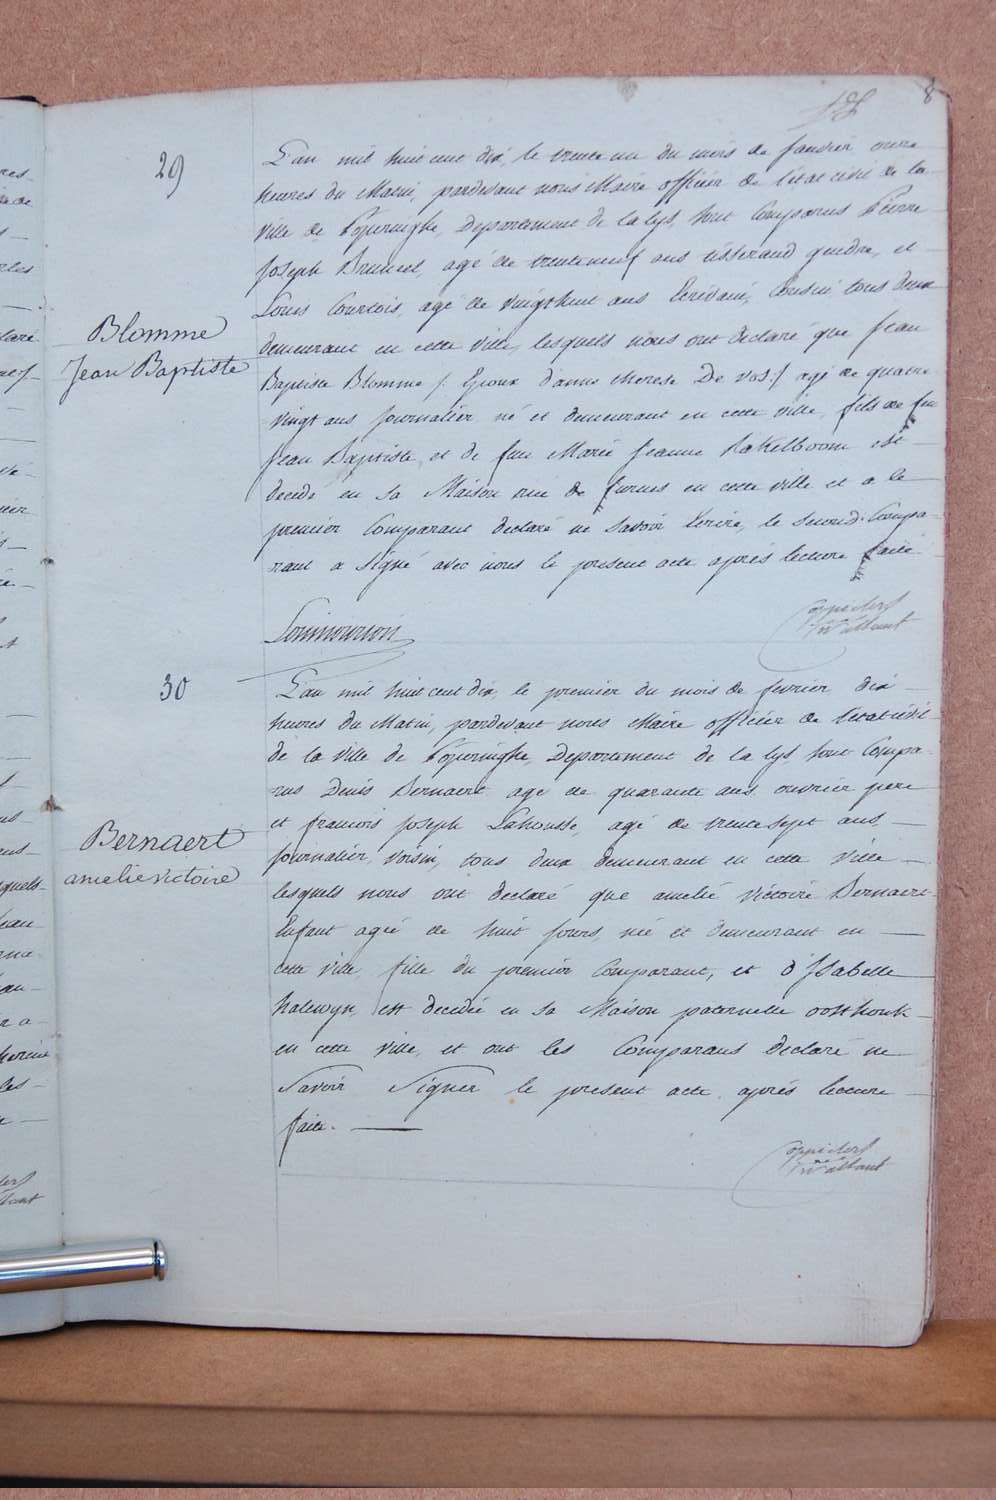 8
29
Blomme
Jean Baptiste
L'an mil huit cent dix, le trente un du mois de Janvier onze
heures du Matin, pardevant nous Maire officier de l'état civil de la
ville de Poperinghe, Departement de la lys, sont Comparus Pierre
Joseph Bruneel, agé de trenteneuf ans tisserand gendre, et
Louis Courtois, agé de vingthuit ans Ecrivain, Cousin, tous deux
demeurant en cette ville, lesquels nous ont declaré que Jean
Baptiste Blomme /: Epoux d'anne therese De vos :/ agé de quatre
vingt ans Journalier né et demeurant en cette ville, fils de feu
Jean Baptiste et de feue Marie Jeanne Kakelboom est
decedé en sa Maison rue de furnes en cette ville et a le
premier Comparant declaré ne savoir Ecrire, le second Compa-
rant a signé avec nous le present acte après lecture faite
Louis Courtois
30
Bernaert
amelie victoire
L'an mil huit cent dix, le premier du mois de fevrier, dix
heures du Matin, pardevant nous Maire officier de l'etat civil
de la ville de Poperinghe, Departement de la lys, sont Compa-
rus Denis Bernaert agé de quarante ans ouvrier pere
et francois Joseph Lahousse, agé de trentesept ans,
Journalier, Voisin, tous deux demeurant en cette ville
lesquels nous ont declaré que amelie Victoire Bernaert
Enfant agée de huit Jours, née et demeurant en
cette ville, fille du premier Comparant, et d'Isabelle
halewyn, est decedée en sa Maison paternelle oosthouk
en cette ville, et ont les Comparans declaré ne
Savoir Signer le present acte après lecture
faite.